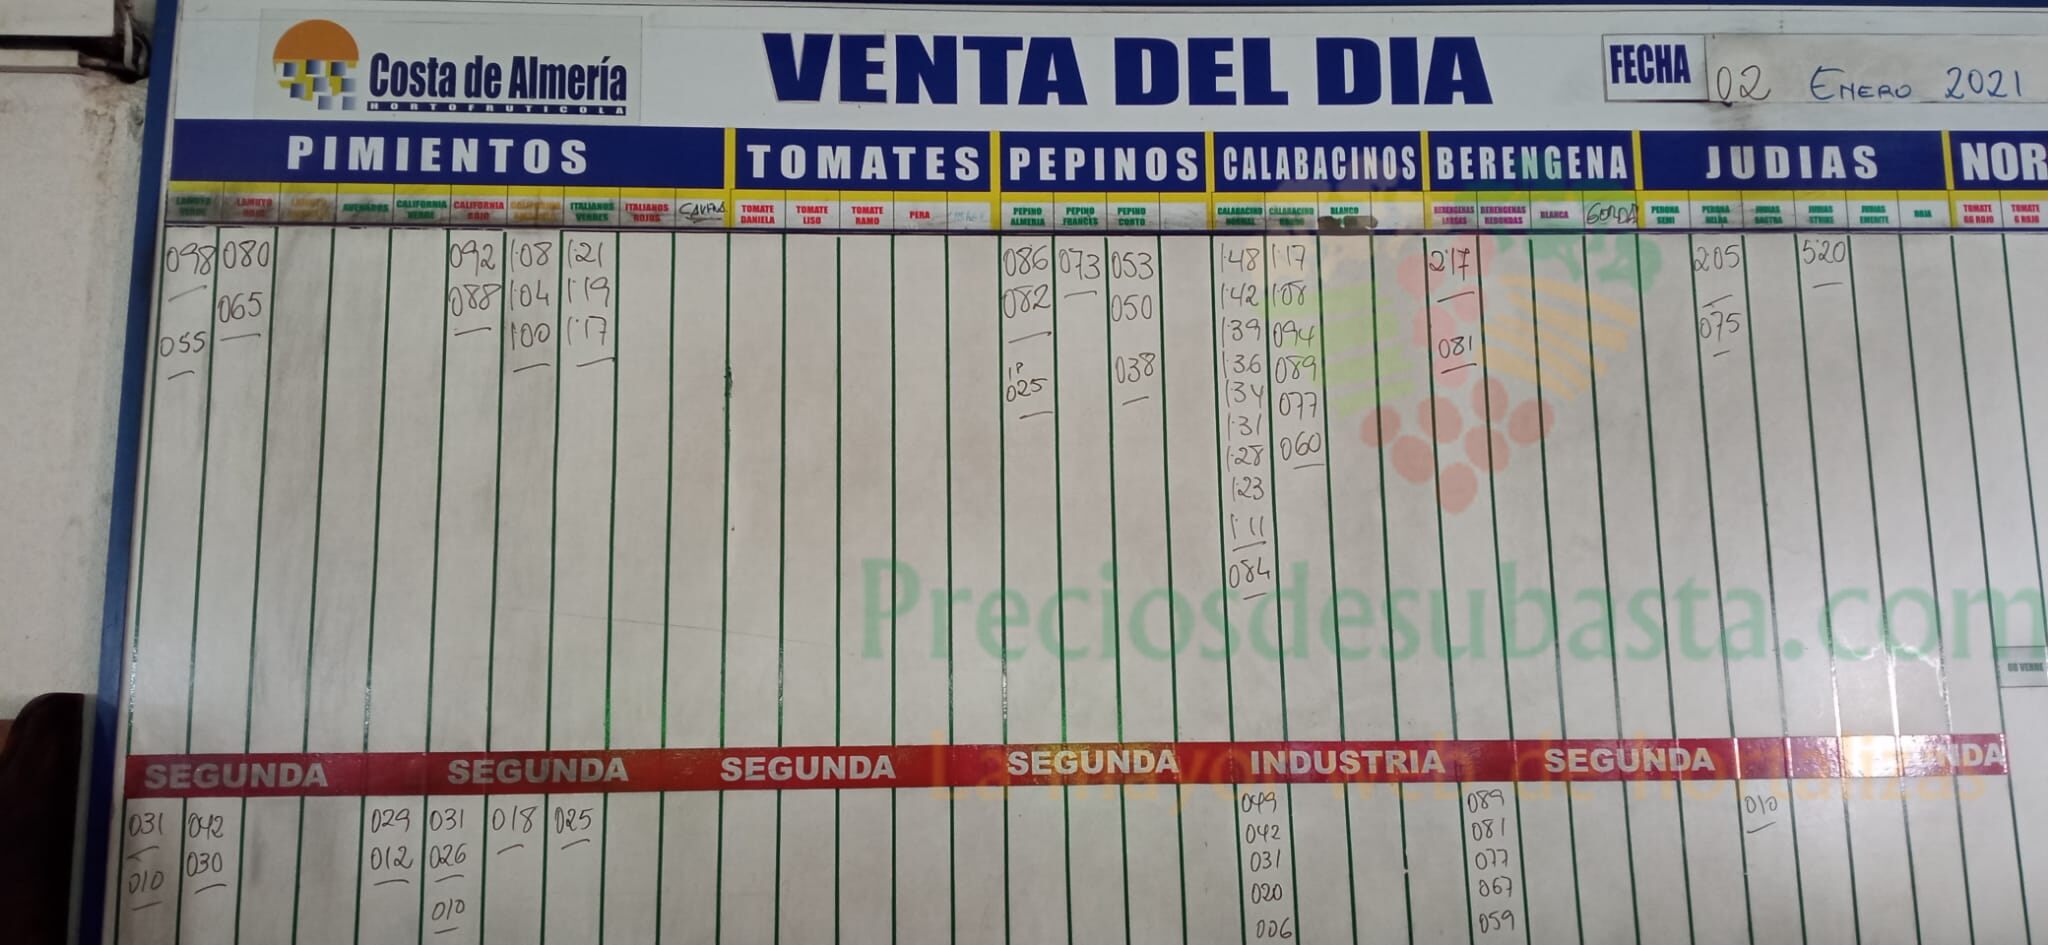 Costa de Almería
HORTOFRUTICOLA
VENTA DEL DIA
FECHA 02 ENERO 2021
PIMIENTOS TOMATES PEPINOS CALABACINOS BERENGENA JUDIAS NOR
LAMUYO VERDE LAMUYO ROJO LAMUYO CALIFORNIA VERDE CALIFORNIA ROJO CALIFORNIA ITALIANOS VERDES ITALIANOS ROJOS TOMATE DANIELA TOMATE LISO TOMATE RAMO PERA PEPINO ALMERIA PEPINO FRANCES PEPINO CORTO CALABACINO NORMAL CALABACINO GORDO BLANCO BERENGENAS LARGAS BERENGENAS REDONDAS BLANCA GORDA PERONA SEMI PERONA JUDIAS JUDIAS STRIKE JUDIAS EMERITE ROJA TOMATE GG ROJO TOMATE G ROJO
098 080 092 1·08 1·21 086 073 053 1·48 1·17 2·17 205 520
065 088 1·04 1·19 082 050 1·42 1·08
055 1·00 1·17 1·39 094 081 075
1P 025 038 1·36 089
1·34 077
1·31
1·28 060
1·23
1·11
084
Preciosdesubasta.com
GG VERDE
La mayor web de hortalizas
SEGUNDA SEGUNDA SEGUNDA SEGUNDA INDUSTRIA SEGUNDA NDA
031 042 029 031 018 025 049 089 010
030 012 026 042 081
010 031 077
010 020 067
006 059